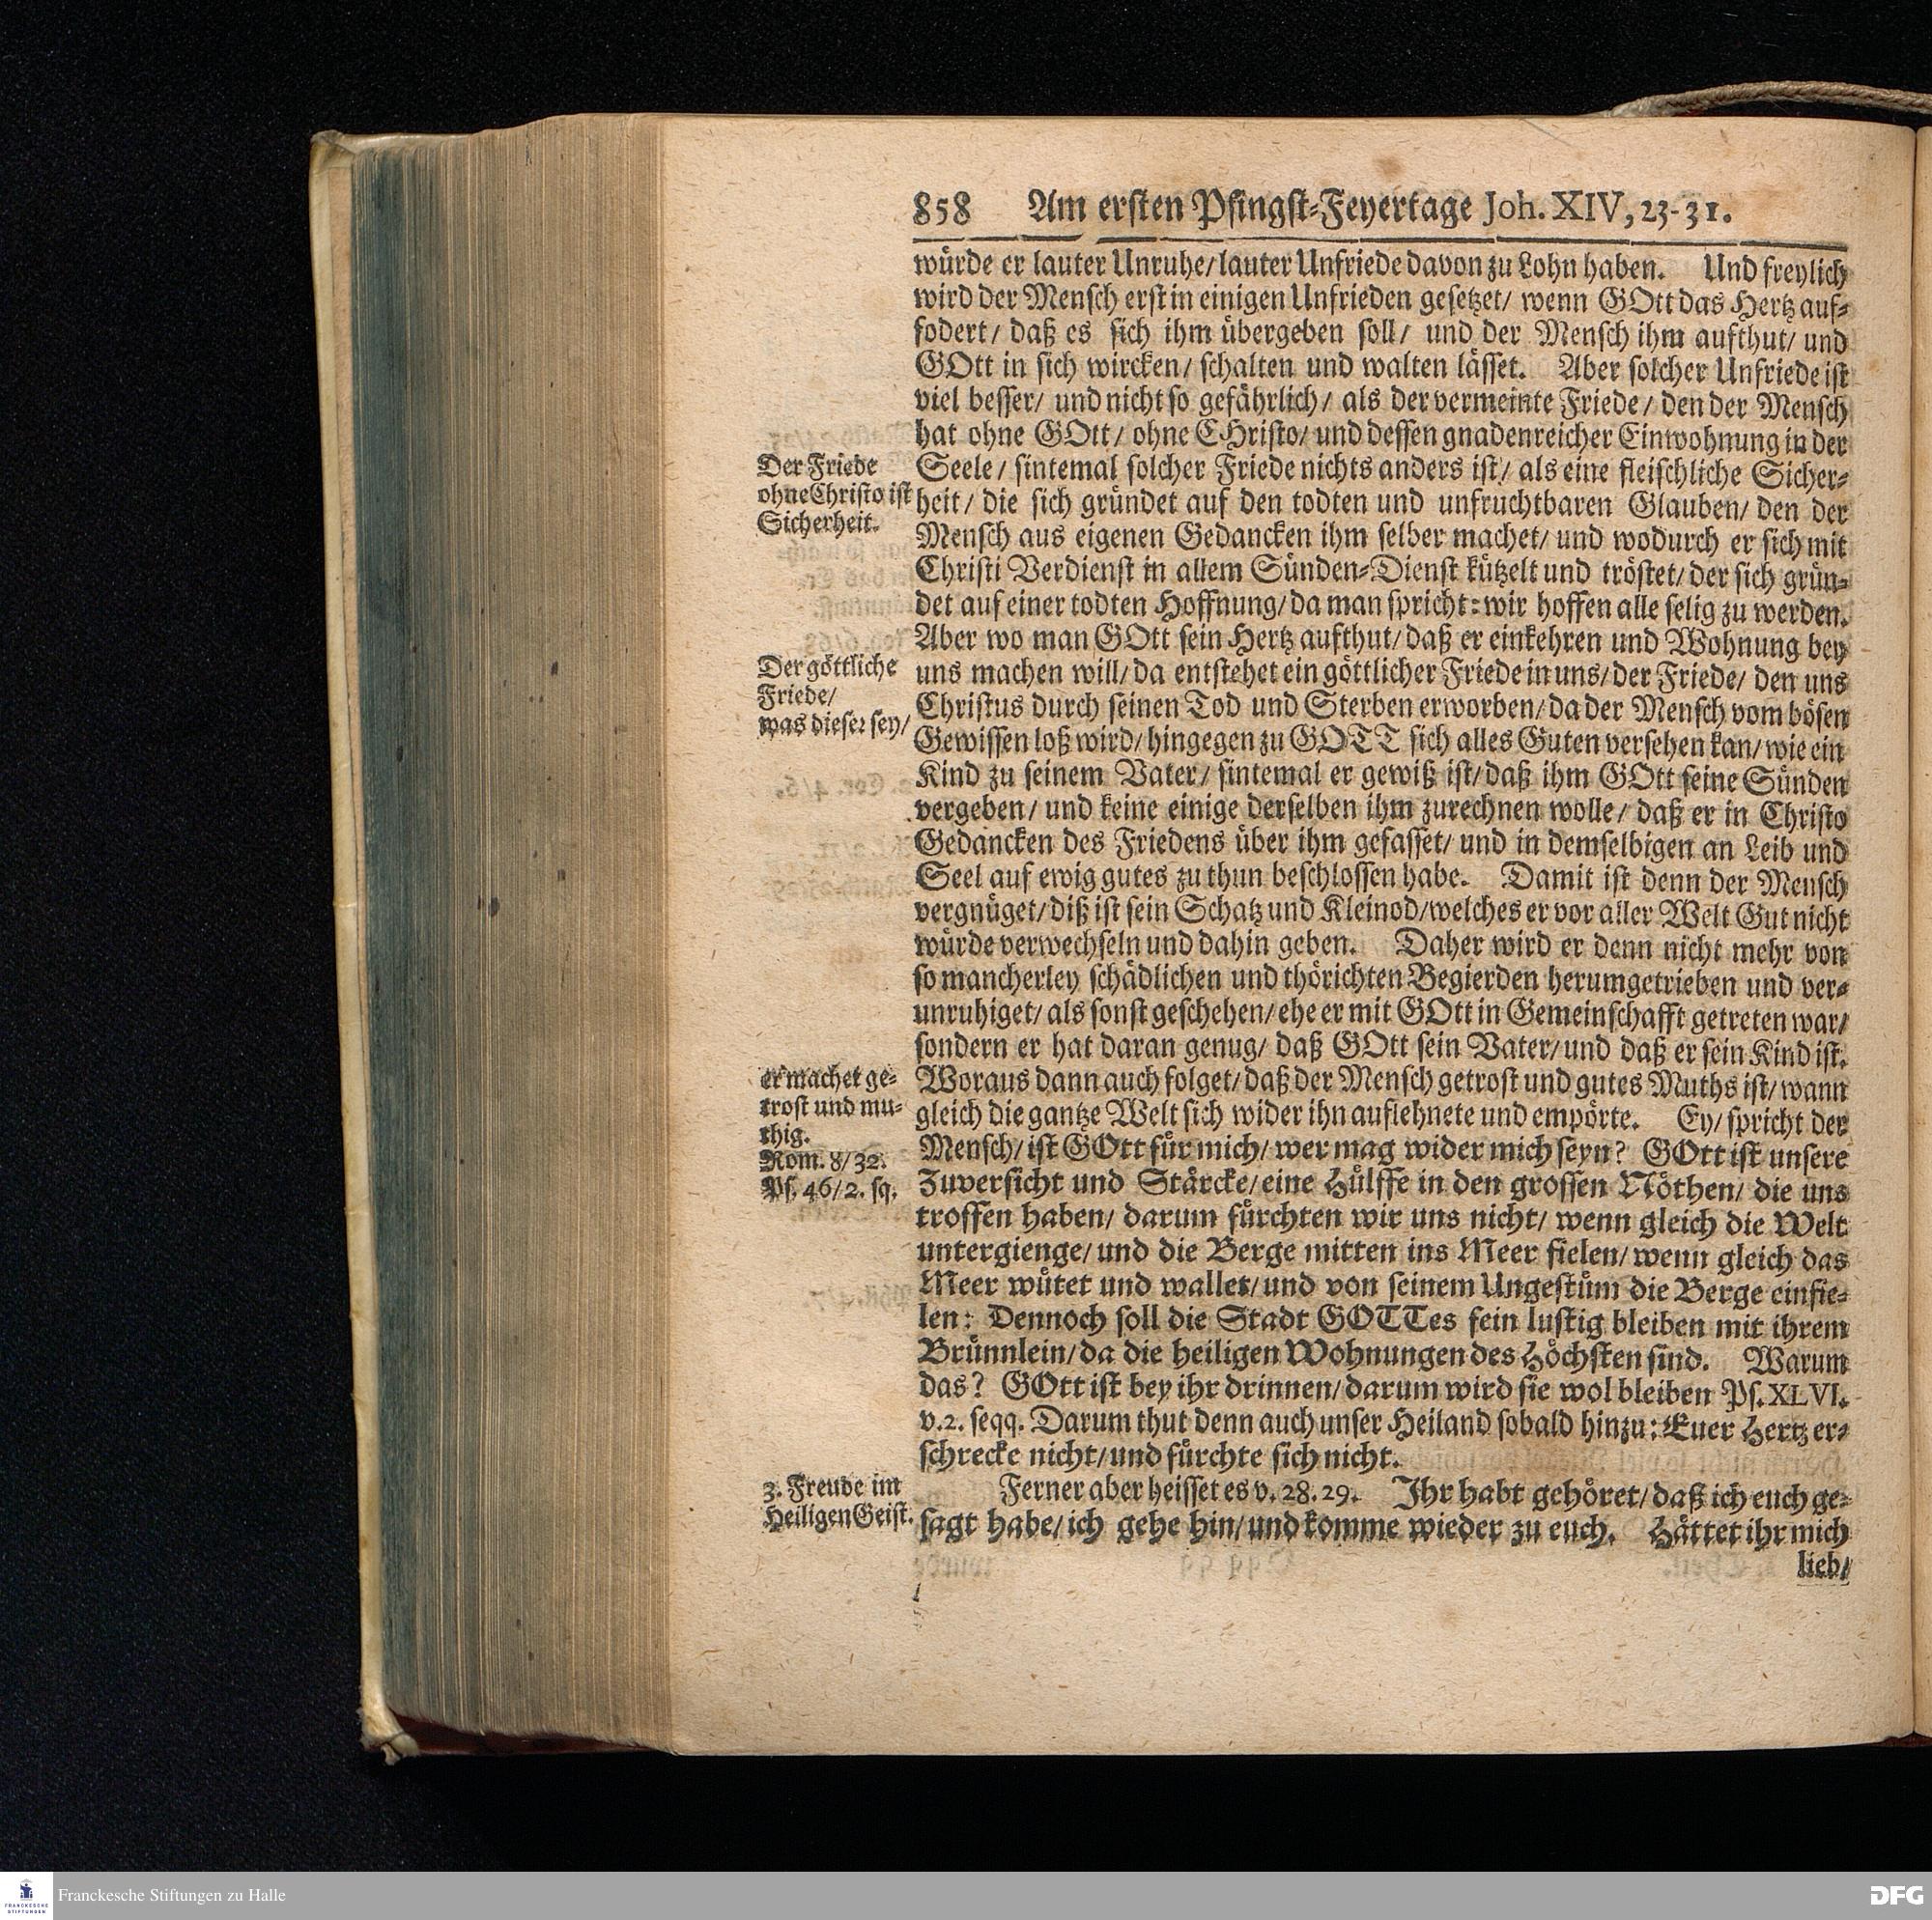 858 Am ersten Pfingst-Feyertage Joh. XIV, 23-31.
würde er lauter Unruhe/ lauter Unfriede davon zu Lohn haben. Und freylich
wird der Mensch erst in einigen Unfrieden gesetzet/ wenn GOtt das Hertz auf-
fodert/ daß es sich ihm übergeben soll/ und der Mensch ihm aufthut/ und
GOtt in sich wircken/ schalten und walten lässet. Aber solcher Unfriede ist
viel besser/ und nicht so gefährlich/ als der vermeinte Friede/ den der Mensch
hat ohne GOtt/ ohne CHristo/ und dessen gnadenreicher Einwohnung in der
Seele/ sintemal solcher Friede nichts anders ist/ als eine fleischliche Sicher-
heit/ die sich gründet auf den todten und unfruchtbaren Glauben/ den der
Mensch aus eigenen Gedancken ihm selber machet/ und wodurch er sich mit
Christi Verdienst in allem Sünden-Dienst kützelt und tröstet/ der sich grün-
det auf einer todten Hoffnung/ da man spricht: wir hoffen alle selig zu werden.
Aber wo man GOtt sein Hertz aufthut/ daß er einkehren und Wohnung bey
uns machen will/ da entstehet ein göttlicher Friede in uns/ der Friede/ den uns
Christus durch seinen Tod und Sterben erworben/ da der Mensch vom bösen
Gewissen loß wird/ hingegen zu GOTT sich alles Guten versehen kan/ wie ein
Kind zu seinem Vater/ sintemal er gewiß ist/ daß ihm GOtt seine Sünden
vergeben/ und keine einige derselben ihm zurechnen wolle/ daß er in Christo
Gedancken des Friedens über ihm gefasset/ und in demselbigen an Leib und
Seel auf ewig gutes zu thun beschlossen habe. Damit ist denn der Mensch
vergnüget/ diß ist sein Schatz und Kleinod/ welches er vor aller Welt Gut nicht
würde verwechseln und dahin geben. Daher wird er denn nicht mehr von
so mancherley schädlichen und thörichten Begierden herumgetrieben und ver-
unruhiget/ als sonst geschehen/ ehe er mit GOtt in Gemeinschafft getreten war/
sondern er hat daran genug/ daß GOtt sein Vater/ und daß er sein Kind ist.
Woraus dann auch folget/ daß der Mensch getrost und gutes Muths ist/ wann
gleich die gantze Welt sich wider ihn auflehnete und empörte. Ey/ spricht der
Mensch/ ist GOtt für mich/ wer mag wider mich seyn? GOtt ist unsere
Zuversicht und Stärcke/ eine Hülffe in den grossen Nöthen/ die uns
troffen haben/ darum fürchten wir uns nicht/ wenn gleich die Welt
untergienge/ und die Berge mitten ins Meer fielen/ wenn gleich das
Meer wütet und wallet/ und von seinem Ungestüm die Berge einfie-
len: Dennoch soll die Stadt GOTTes fein lustig bleiben mit ihrem
Brünnlein/ da die heiligen Wohnungen des Höchsten sind. Warum
das? GOtt ist bey ihr drinnen/ darum wird sie wol bleiben Ps. XLVI.
v. 2. seqq. Darum thut denn auch unser Heiland sobald hinzu: Euer Hertz er-
schrecke nicht/ und fürchte sich nicht.
Ferner aber heisset es v. 28. 29. Ihr habt gehöret/ daß ich euch ge-
sagt habe/ ich gehe hin/ und komme wieder zu euch. Hättet ihr mich
lieb/
Der Friede
ohne Christo ist
Sicherheit.
Der göttliche
Friede/
was dieser sey/
er machet ge-
trost und mu-
thig.
Rom. 8/32.
Ps. 46/2. sq.
3. Freude im
Heiligen Geist.
Franckesche Stiftungen zu Halle
FRANCKESCHE
STIFTUNGEN
DFG